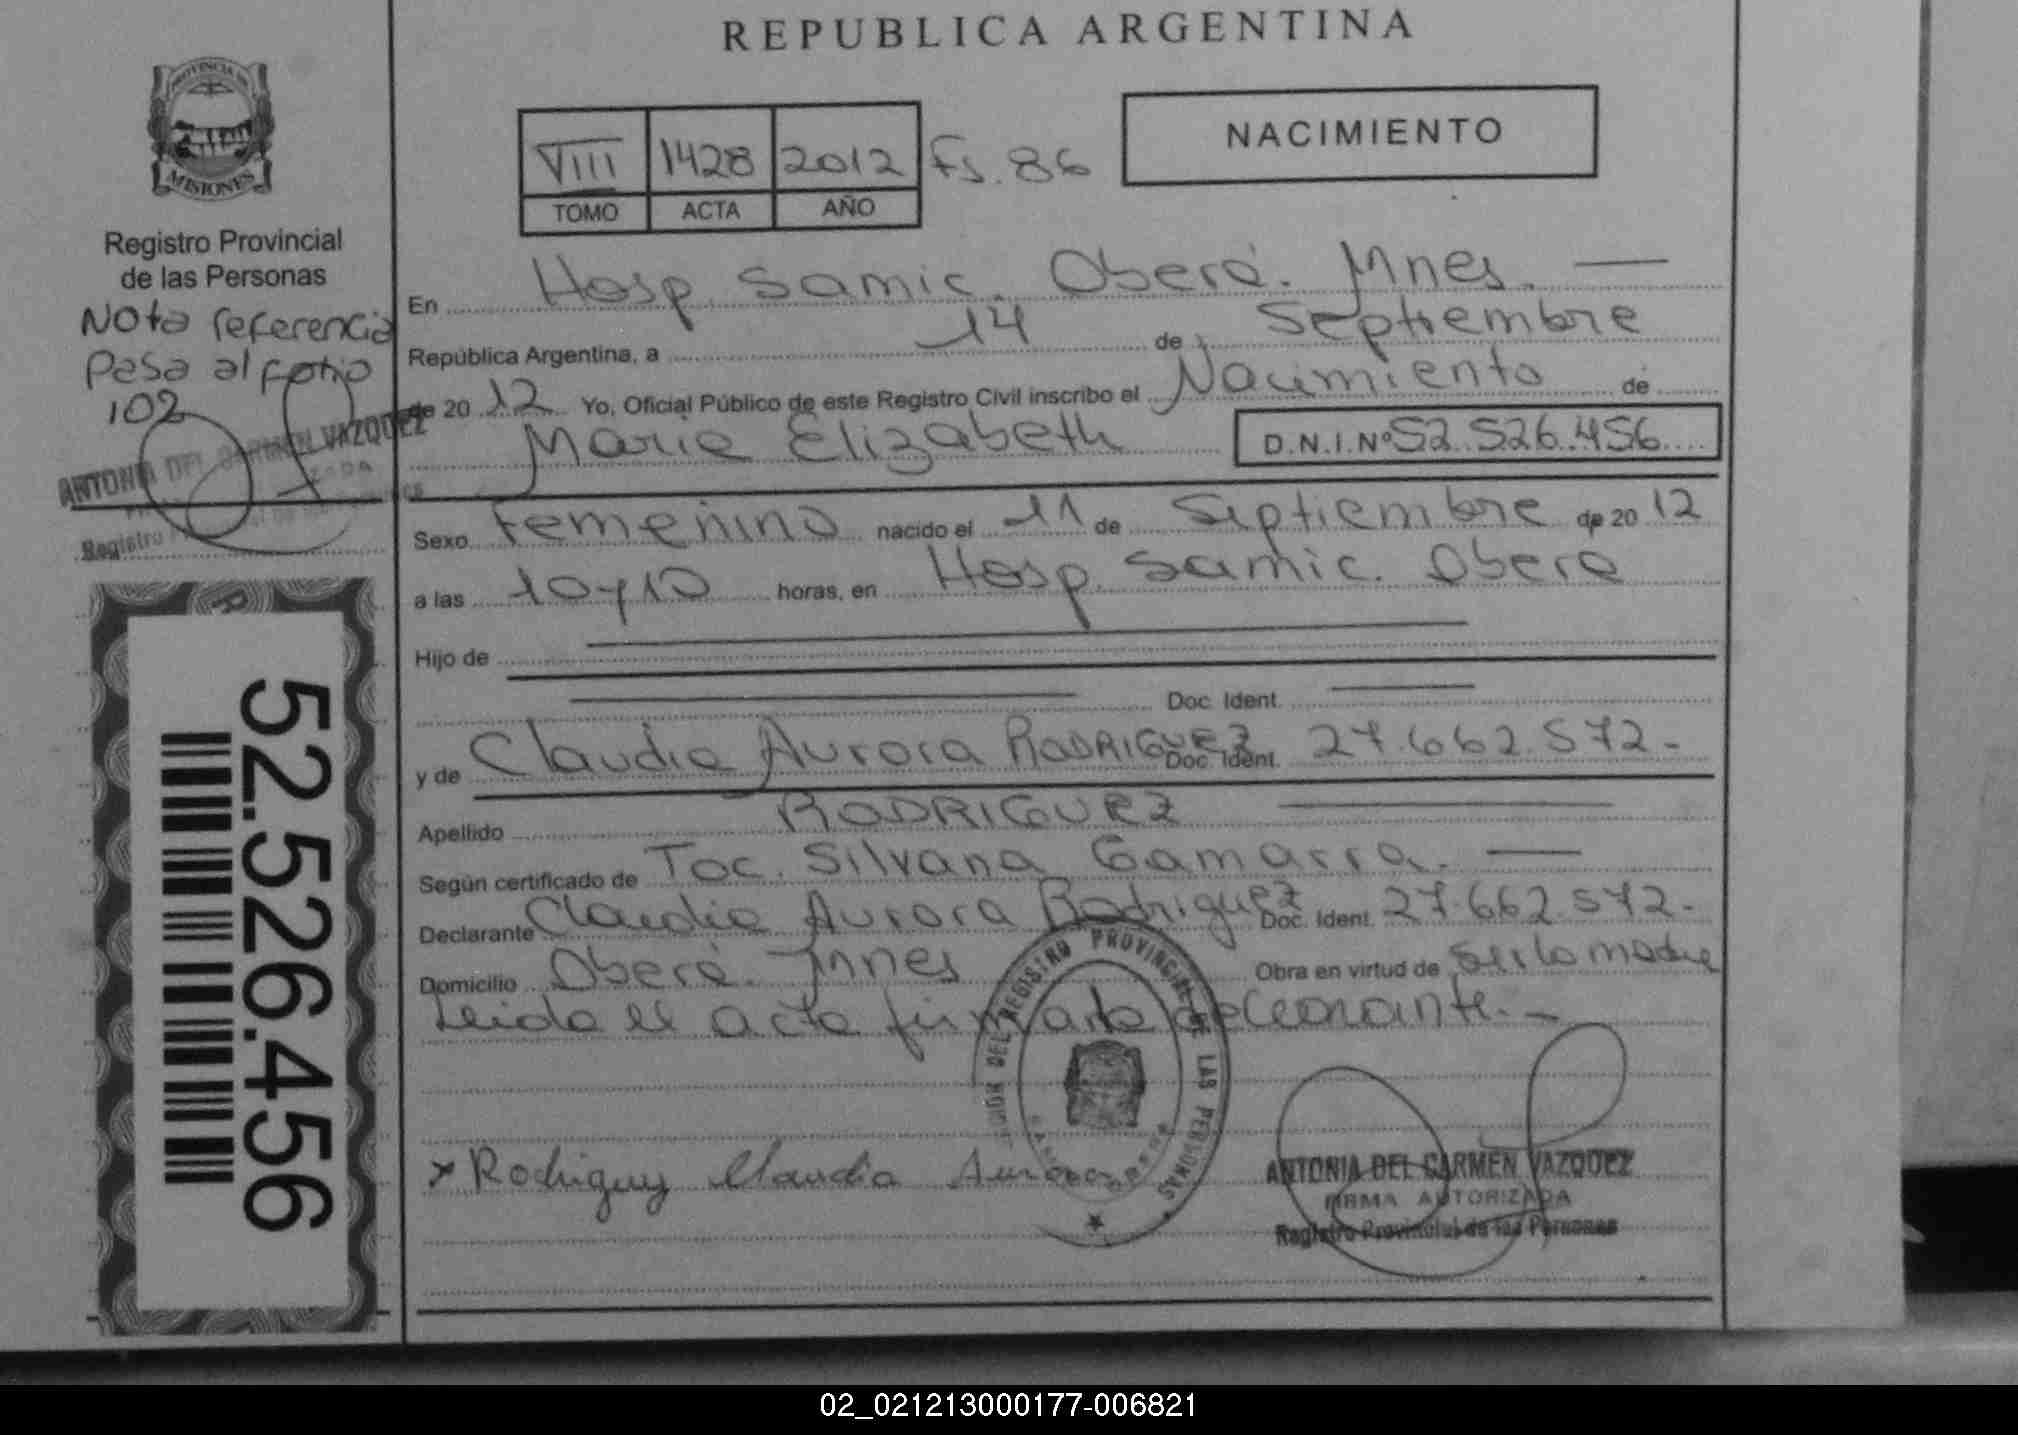 REPUBLICA ARGENTINA
PROVINCIA DE
MISIONES
Registro Provincial
de las Personas
Nota referencia
Pasa al folio
102
ANTONIA DEL CARMEN VAZQUEZ
Registro
52.526.456
VIII 1428 2012 Fs. 86
TOMO ACTA AÑO
NACIMIENTO
En Hosp. Samic. Oberá. Mnes.
República Argentina, a 14 de Septiembre
de 20 12 Yo, Oficial Público de este Registro Civil inscribo el Nacimiento de
Maria Elizabeth D.N.I.Nº 52.526.456
Sexo Femenino nacido el 11 de Septiembre de 20 12
a las 10 y 10 horas, en Hosp. Samic. Obera
Hijo de
Doc. Ident.
y de Claudia Aurora RODRIGUEZ Doc. Ident. 27.662.572.-
Apellido RODRIGUEZ
Según certificado de Toc. Silvana Gamarra.
Declarante Claudia Aurora Rodriguez Doc. Ident. 27.662.572.-
Domicilio Oberá. Mnes Obra en virtud de ser la madre
Leida el acta firma la declarante.-
DEL REGISTRO PROVINCIAL DE LAS PERSONAS
x Rodriguez Claudia Aurora
ANTONIA DEL CARMEN VAZQUEZ
FIRMA AUTORIZADA
Registro Provincial de las Personas
02_021213000177-006821